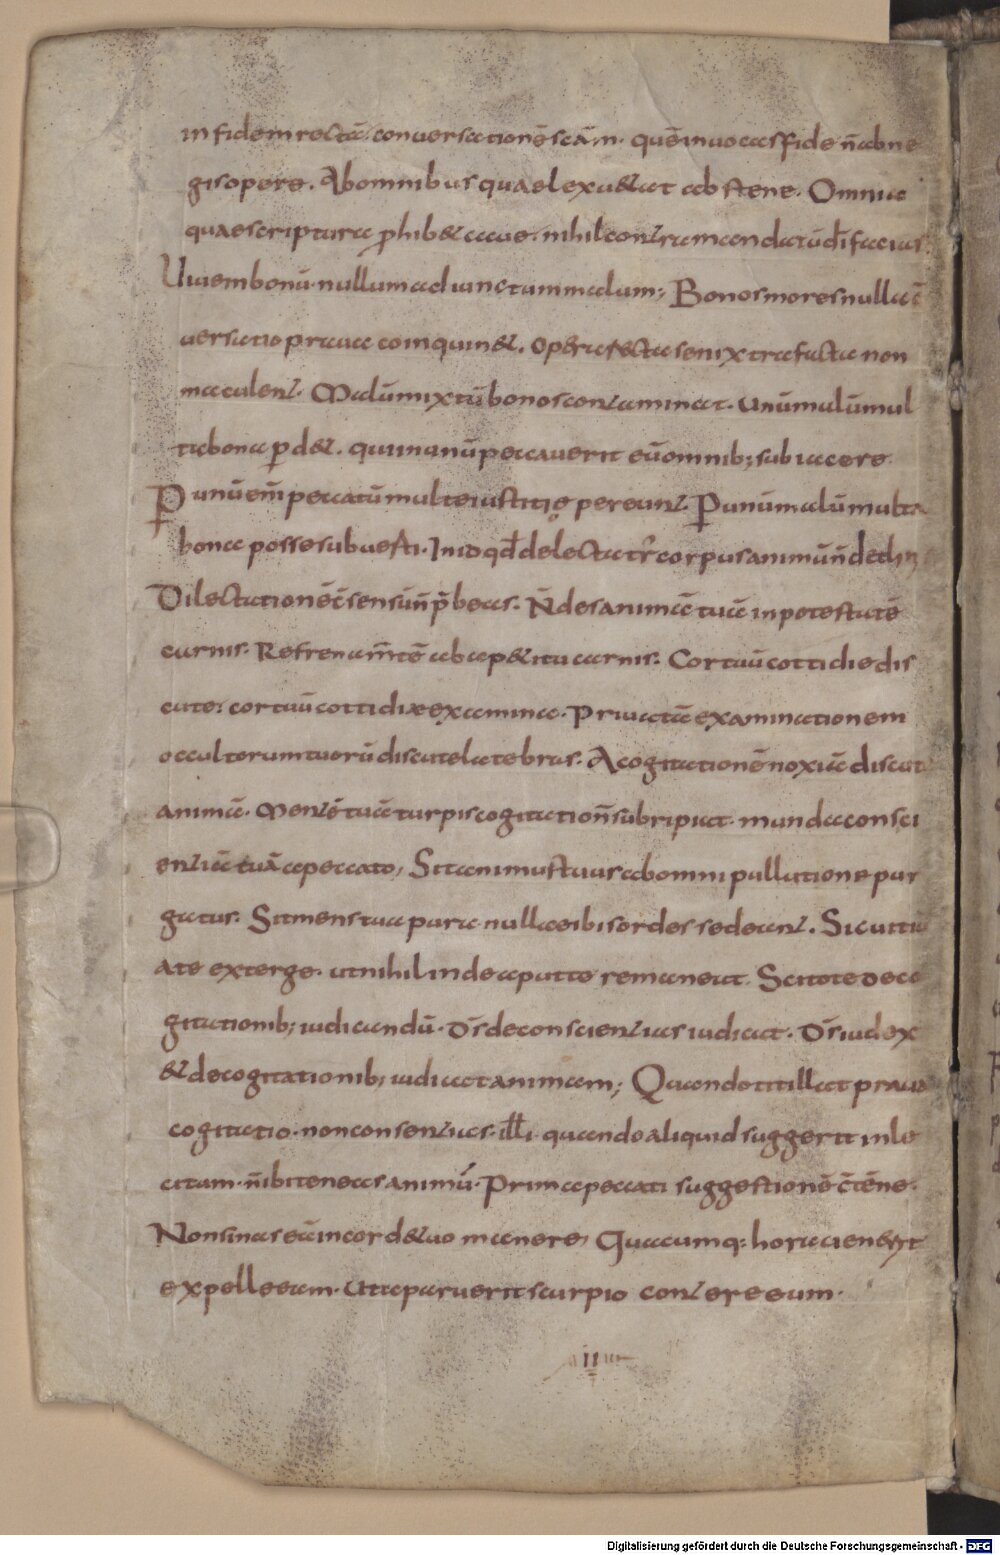 infidem rectā. conuersationē scām. quē inuocas fide n̄ abne
gis opere. Ab omnibus quae lex uetat abstene. Omnia
quae scriptura ꝓhibet caue. nihil contra mandatū dī facias.
Uiuem bonū. nullum adiunc tum malum; Bonos mores nulla cō
uersatio praua coinquinet. opera recta senixtra facta non
maculent. Malū mixtū bonos contaminat. Unū malū mul
ta bona ꝑdet. qui in unū peccauerit eū omnib; subiacere
P unū em̄ peccatū multe iustitię pereunt. P unū malū multa
bona posse subuerti. In id qd̄ delectatr̄ corpus animū n̄ decli
Dilectationē c̄sensū n̄ p̄beas. N̄ des animā tuā in potestatē
carnis. Refrena m̄tē ab apetitu carnis. Cor tuū cottidie dis
cute. cor tuū cottidixe examina. Priuatā examinationem
occultorum tuorū discute latebras. A cogitationē noxiā discute
animā. Mentē tuā turpis cogitation̄ subripiat. munda consci
entiā tuā a peccato, Sit animus tuus ab omni pullutione pur
gatus. Sit mens tua pura. nullae ibi sordes sedeant. Sic uitia
ate exterge. ut nihil inde aput to remaneat. Scitote de co
gitationib; iudicandū. Ds̄ de conscientias iudicat. Ds̄ iudex
& de cogitationib; iudicat animam; Quando titillat praua
cogitatio. non consentias. illi. quando aliquid suggerit inle
citam. n̄ ibi teneas animū. Prima peccati suggestionē c̄tēne.
Non sinas eā in corde tuo manere, Quacumq: hora
expelle eam. Ut aparuerit scurpio contere eum.
II
Digitalisierung gefördert durch die Deutsche Forschungsgemeinschaft - DFG